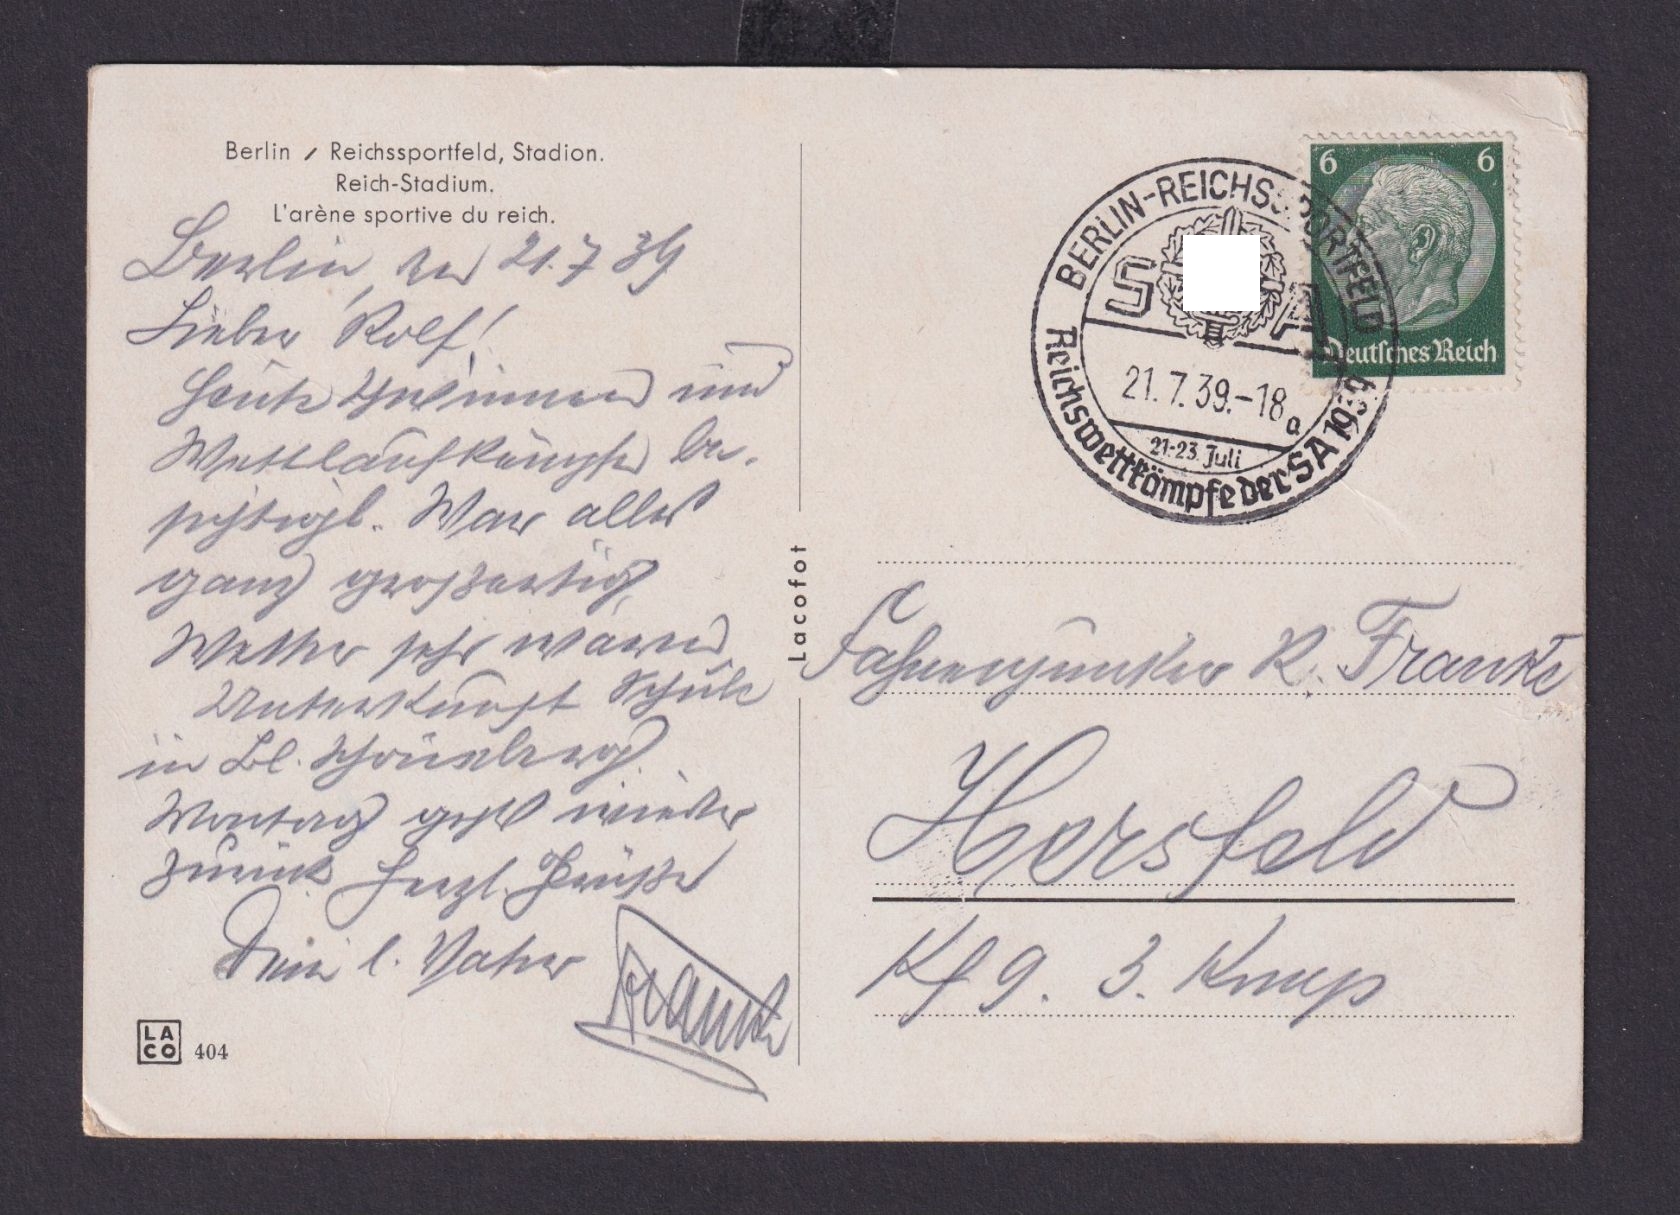 Berlin / Reichssportfeld, Stadion.
Reich-Stadium.
L'arène sportive du reich.
Berlin, den 21.7.39
Lieber Rolf!
Heute Schwimmen und
Wettlaufkämpfe be-
sichtigt. War alles
ganz großartig
Wetter sehr warm
Unterkunft Schule
in Bl. Schöneberg
Montag geht wieder
zurück Herzl. Grüße
Dein l. Vater
Franke
LACO 404
Lacofot
BERLIN-REICHSSPORTFELD
SA
21.7.39.-18
a
21-23. Juli
Reichswettkämpfe der SA 1939
6 6
Deutsches Reich
Fahnenjunker R. Franke
Hersfeld
3. Komp